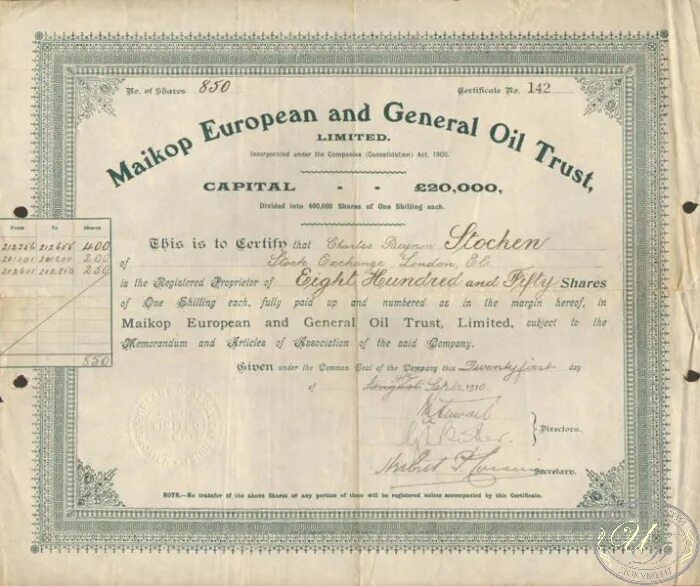 No. of Shares 850 Certificate No. 142
Maikop European and General Oil Trust,
LIMITED.
Incorporated under the Companies (Consolidation) Act, 1908.
CAPITAL - - £20,000,
Divided into 400,000 Shares of One Shilling each.
From To Shares
400
200
250
850
This is to Certify that Charles Beynon Stocken
of Stock Exchange, London, E.C.
is the Registered Proprietor of Eight Hundred and Fifty Shares
of One Shilling each, fully paid up and numbered as in the margin hereof, in
Maikop European and General Oil Trust, Limited, subject to the
Memorandum and Articles of Association of the said Company.
Given under the Common Seal of the Company this Twentyfirst day
of Septr 1910
Directors.
Secretary.
NOTE.—No transfer of the above Shares or any portion of them will be registered unless accompanied by this Certificate.
ДОКУМЕНТ